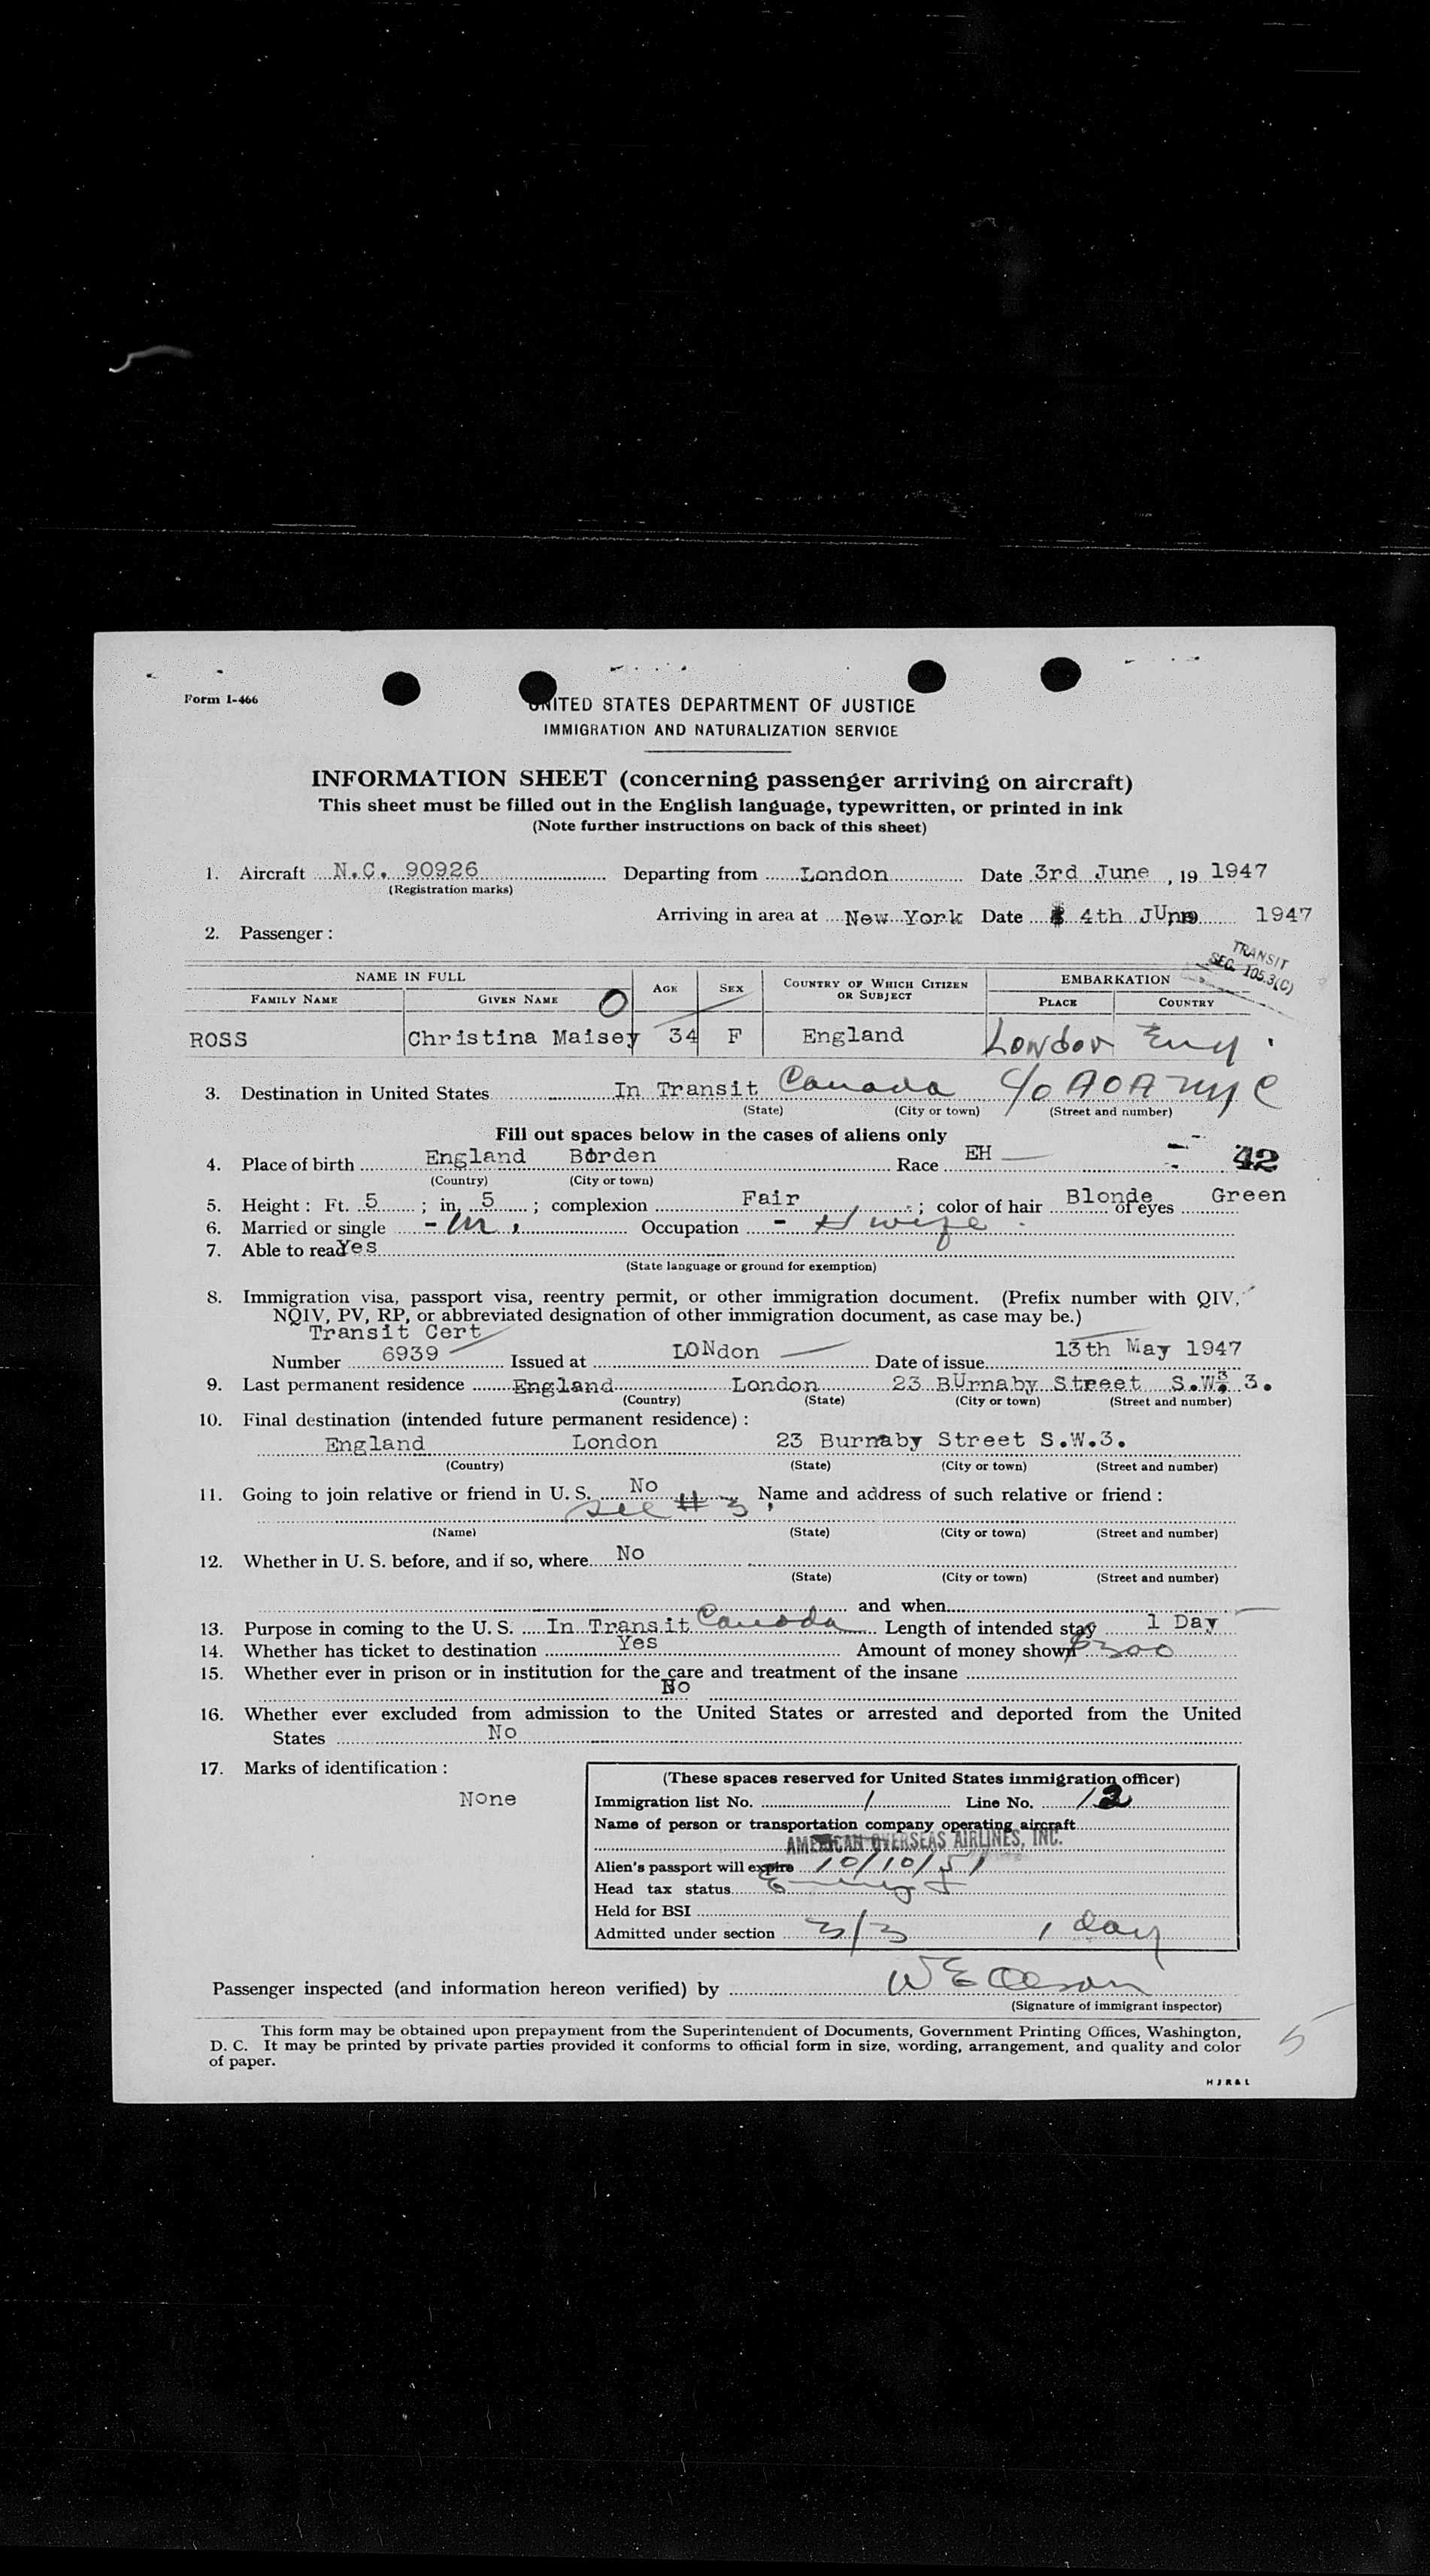 Form I-466
UNITED STATES DEPARTMENT OF JUSTICE
IMMIGRATION AND NATURALIZATION SERVICE
INFORMATION SHEET (concerning passenger arriving on aircraft)
This sheet must be filled out in the English language, typewritten, or printed in ink
(Note further instructions on back of this sheet)
1. Aircraft N.C. 90926 Departing from London Date 3rd June, 19 1947
(Registration marks)
Arriving in area at New York Date 4th JUne 1947
2. Passenger :
TRANSIT
SEC. 105.3(C)
NAME IN FULL AGE SEX COUNTRY OF WHICH CITIZEN OR SUBJECT EMBARKATION
FAMILY NAME GIVEN NAME PLACE COUNTRY
ROSS Christina Maisey 34 F England London Eng.
3. Destination in United States In Transit Canada c/o AOA NYC
(State) (City or town) (Street and number)
Fill out spaces below in the cases of aliens only
4. Place of birth England Borden Race EH 42
(Country) (City or town)
5. Height : Ft. 5 ; in. 5 ; complexion Fair ; color of hair Blonde of eyes Green
6. Married or single - M. Occupation - H wife
7. Able to read Yes
(State language or ground for exemption)
8. Immigration visa, passport visa, reentry permit, or other immigration document. (Prefix number with QIV,
NQIV, PV, RP, or abbreviated designation of other immigration document, as case may be.)
Transit Cert
Number 6939 Issued at LONdon Date of issue 13th May 1947
9. Last permanent residence England London 23 BUrnaby Street S.W. 3.
(Country) (State) (City or town) (Street and number)
10. Final destination (intended future permanent residence) :
England London 23 Burnaby Street S.W.3.
(Country) (State) (City or town) (Street and number)
11. Going to join relative or friend in U. S. No Name and address of such relative or friend :
See # 3
(Name) (State) (City or town) (Street and number)
12. Whether in U. S. before, and if so, where No
(State) (City or town) (Street and number)
and when
13. Purpose in coming to the U. S. In Transit Canada Length of intended stay 1 Day
14. Whether has ticket to destination Yes Amount of money shown $300
15. Whether ever in prison or in institution for the care and treatment of the insane
No
16. Whether ever excluded from admission to the United States or arrested and deported from the United
States No
17. Marks of identification :
None
(These spaces reserved for United States immigration officer)
Immigration list No. 1 Line No. 12
Name of person or transportation company operating aircraft
AMERICAN OVERSEAS AIRLINES, INC.
Alien's passport will expire 10/10/51
Head tax status
Held for BSI
Admitted under section 3/3 1 day
Passenger inspected (and information hereon verified) by W E Olson
(Signature of immigrant inspector)
This form may be obtained upon prepayment from the Superintendent of Documents, Government Printing Offices, Washington,
D. C. It may be printed by private parties provided it conforms to official form in size, wording, arrangement, and quality and color
of paper.
5
H J R & L